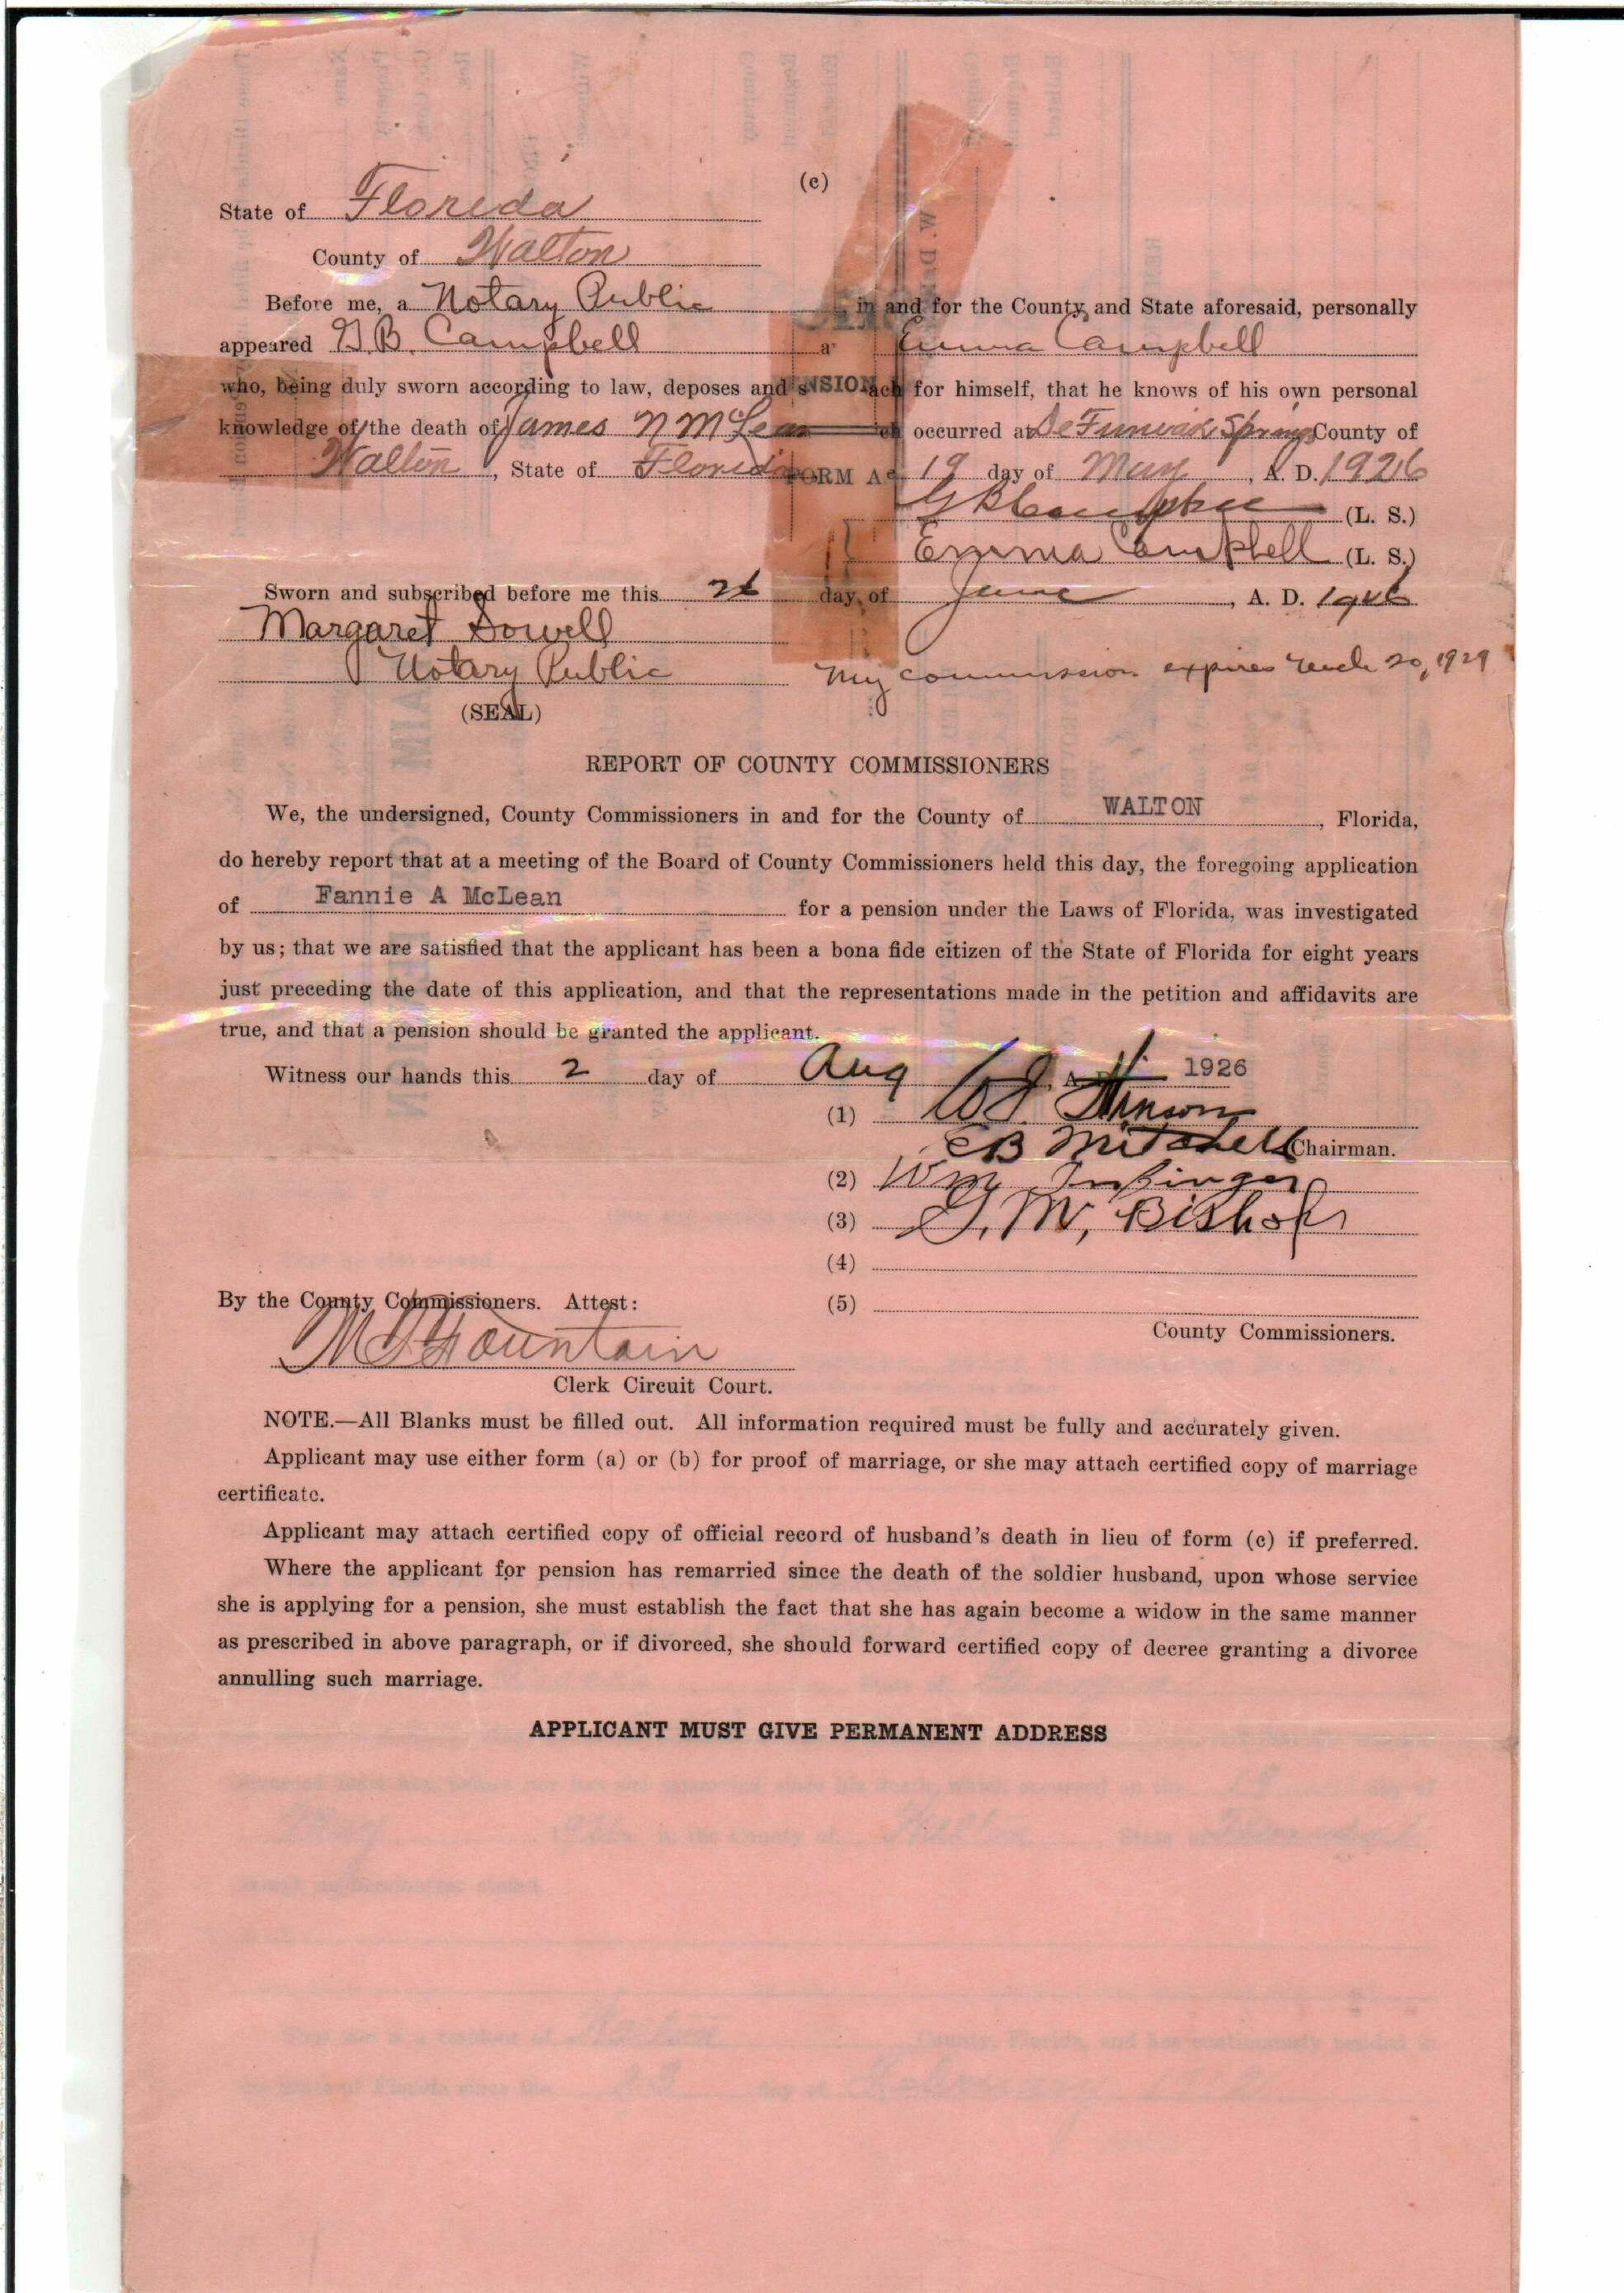 (c)
State of Florida
County of Walton
Before me, a Notary Public in and for the County and State aforesaid, personally
appeared G. B. Campbell a Emma Campbell
who, being duly sworn according to law, deposes and s NSION ach for himself, that he knows of his own personal
knowledge of the death of James N McLean occurred at De Funiak Springs County of
Walton, State of Florida FORM A 19 day of May, A. D. 1926
G B Campbell (L. S.)
Emma Campbell (L. S.)
Sworn and subscribed before me this day of June, A. D. 1926
Margaret Dowell
Notary Public My commission expires 20, 1929
(SEAL)
REPORT OF COUNTY COMMISSIONERS
We, the undersigned, County Commissioners in and for the County of WALTON, Florida,
do hereby report that at a meeting of the Board of County Commissioners held this day, the foregoing application
of Fannie A McLean for a pension under the Laws of Florida, was investigated
by us; that we are satisfied that the applicant has been a bona fide citizen of the State of Florida for eight years
just preceding the date of this application, and that the representations made in the petition and affidavits are
true, and that a pension should be granted the applicant.
Witness our hands this 2 day of Aug, A. 1926
(1) W J Hinson
E B Mitchell Chairman.
(2) Wm
(3) G. M. Bishop
(4)
By the County Commissioners. Attest: (5)
County Commissioners.
M Fountain
Clerk Circuit Court.
NOTE.—All Blanks must be filled out. All information required must be fully and accurately given.
Applicant may use either form (a) or (b) for proof of marriage, or she may attach certified copy of marriage
certificate.
Applicant may attach certified copy of official record of husband's death in lieu of form (c) if preferred.
Where the applicant for pension has remarried since the death of the soldier husband, upon whose service
she is applying for a pension, she must establish the fact that she has again become a widow in the same manner
as prescribed in above paragraph, or if divorced, she should forward certified copy of decree granting a divorce
annulling such marriage.
APPLICANT MUST GIVE PERMANENT ADDRESS